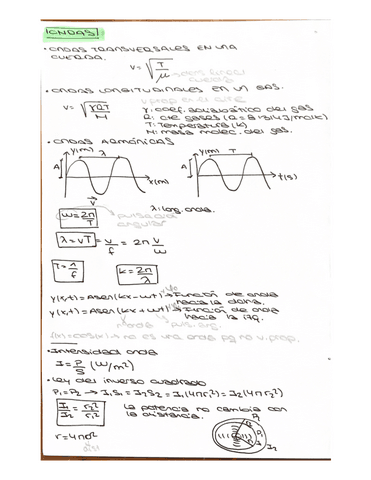 ONDAS
· ONDAS TRANSVERSALES EN UNA
CUERDA.
v = √(T/μ)
· ONDAS LONGITUDINALES EN UN GAS.
v = √(γRT/M)
γ: coef. adiabático del gas
R: cte gases (R = 8'314 J/molK)
T: Temperatura (K)
M: masa molec. del gas.
· ONDAS ARMÓNICAS
y(m) λ A x(m) v
y(m) T A t(s)
λ: long. onda.
ω = 2π/T
λ = vT = v/f = 2π v/ω
T = 1/f
k = 2π/λ
y(x,t) = Asen(kx - ωt) → Función de onda
hacia la dcha.
y(x,t) = Asen(kx + ωt) → Función de onda
hacia la izq.
f(x) = cos(x²) → no es una onda pq no v. prop.
· Intensidad onda
I = P/S (W/m²)
· Ley del inverso cuadrado
P₁ = P₂ → I₁S₁ = I₂S₂ = I₁(4πr₁²) = I₂(4πr₂²)
I₁/I₂ = r₂²/r₁²
La potencia no cambia con
la distancia.